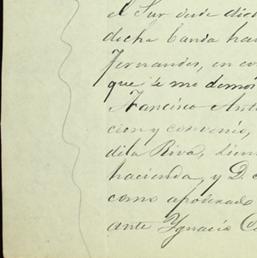 el Sur desde dici
dicha banda ha
Fernandez, en co
que se me demos
Francisco Anto
cion y convenio,
dila Riva, sien
hacienda, y D.
como apoderado
ante Ygnacio